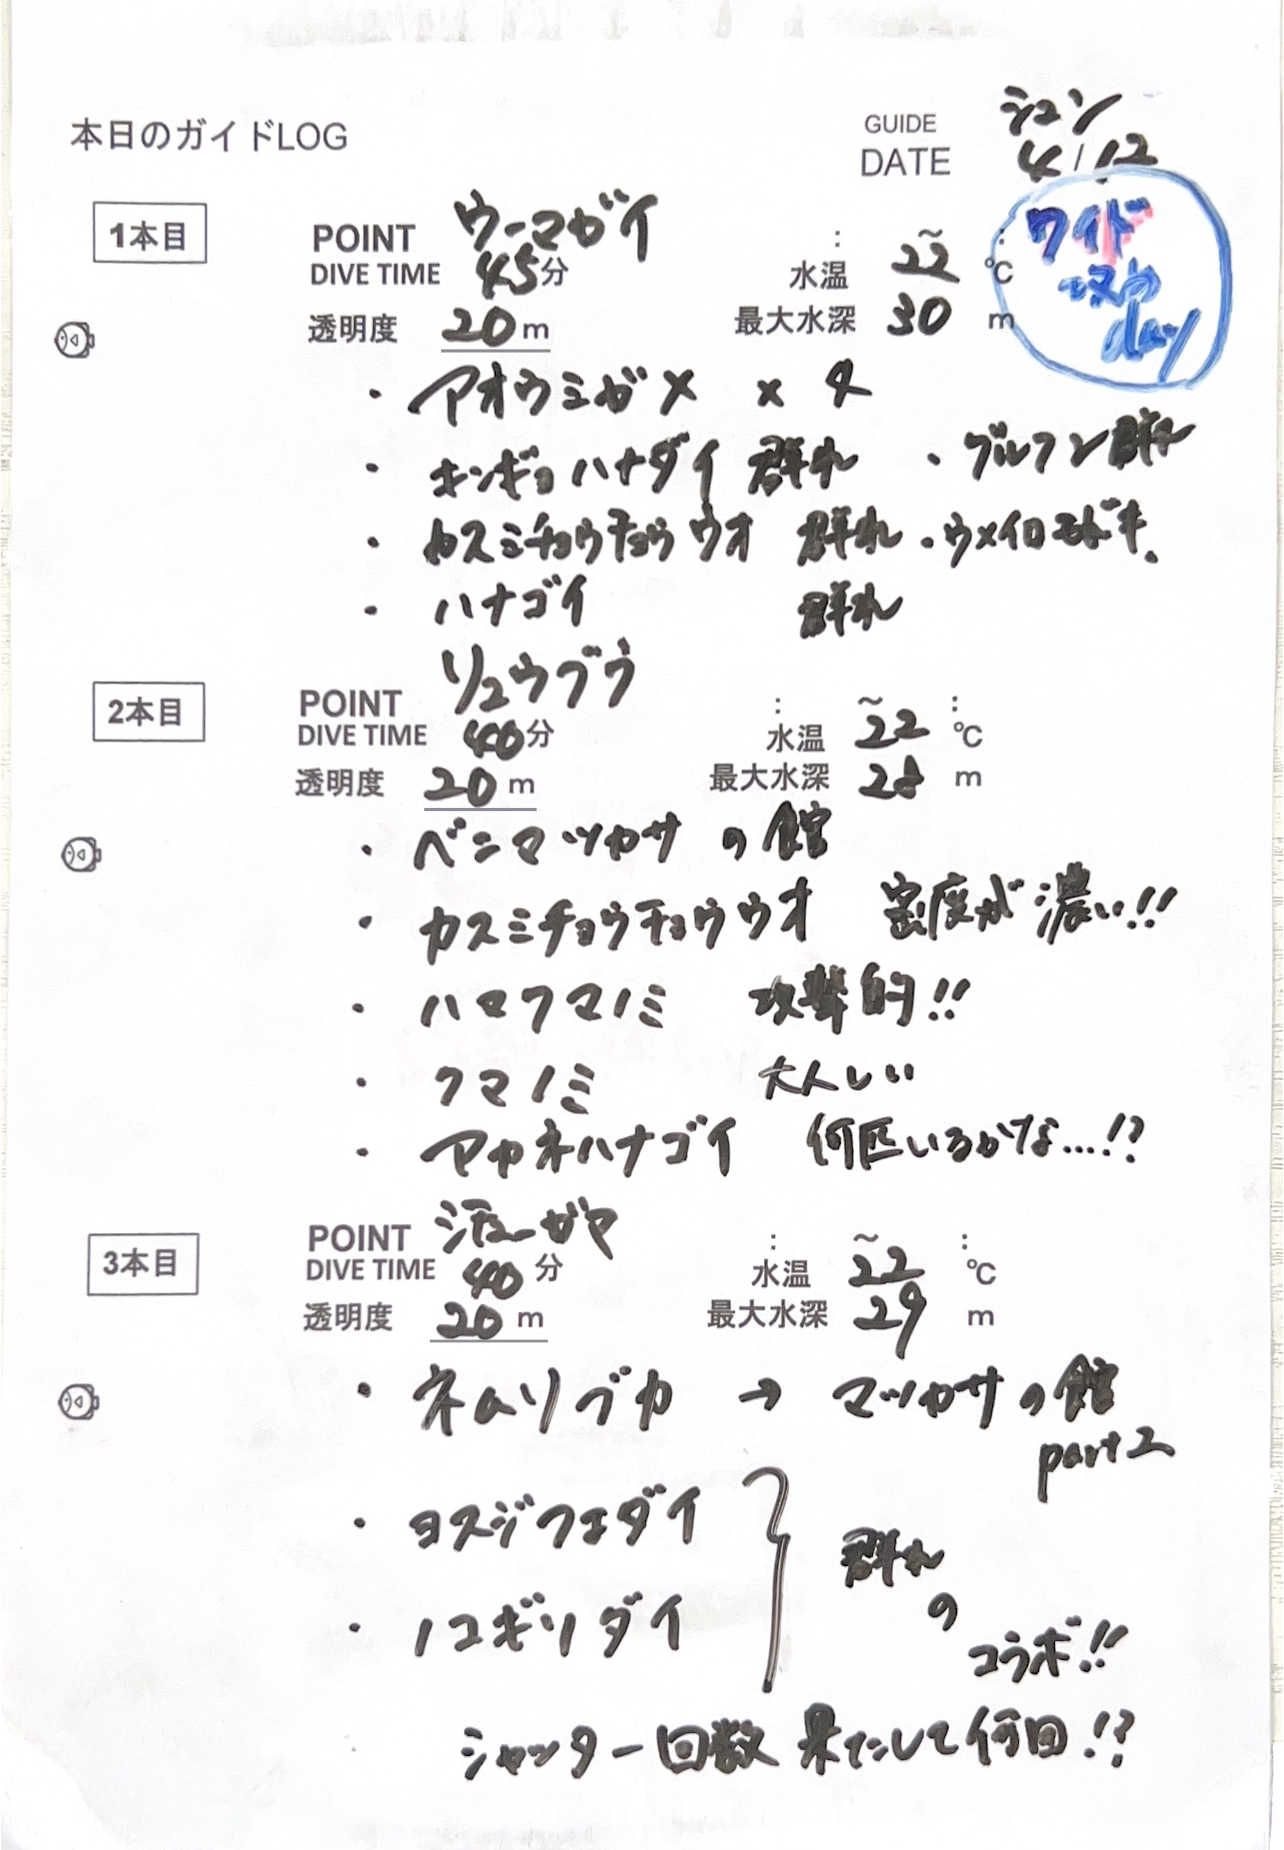 本日のガイドLOG
GUIDE シュン
DATE 4/12
ワイド
day
1本目
POINT ウーマガイ : ~ :
DIVE TIME 45分 水温 22 ℃
透明度 20m 最大水深 30 m
・アオウミガメ × 4
・キンギョハナダイ 群れ ・グルクン群れ
・カスミチョウチョウウオ 群れ ・ウメイロモドキ
・ハナゴイ 群れ
2本目
POINT リュウグウ : ~ :
DIVE TIME 40分 水温 22 ℃
透明度 20m 最大水深 28 m
・ベニマツカサの館
・カスミチョウチョウウオ 密度が濃い!!
・ハマクマノミ 攻撃的!!
・クマノミ 大人しい
・アカネハナゴイ 何匹いるかな...!?
3本目
POINT シチューガマ : ~ :
DIVE TIME 40分 水温 22 ℃
透明度 20m 最大水深 29 m
・ネムリブカ → マツカサの館
part2
・ヨスジフエダイ
・ノコギリダイ
群れ
の
コラボ!!
シャッター回数 果たして何回!?